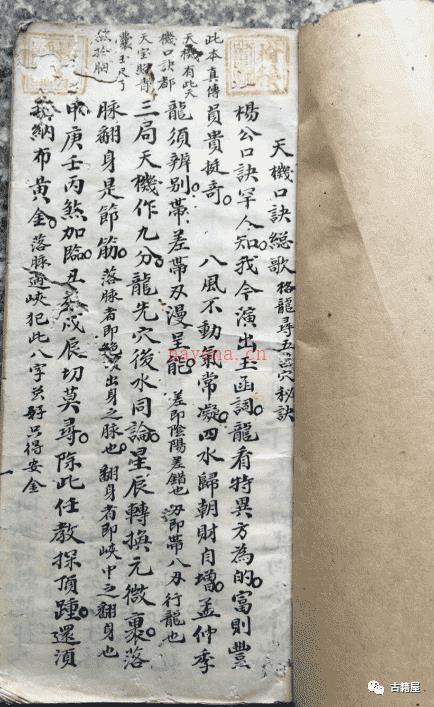 天機口訣總歌 格龍尋五穴秘訣
楊公口訣罕人知我今演出玉函詞龍看特異方為的富則豐
此本真傳
天機有此天
機口訣都
天宝照青
囊玉尺了
然於胸
員貴挺奇 八風不動氣常凝四水歸朝財自增孟仲季
龍須辨别帶差帶刄漫呈能 差即陰陽差錯也刄即帶八刄行龍也
三局天機作九分龍先穴後水同論星辰轉換元微裏落
脉翻身是節筋 落脉者即出身之脉也 翻身者即峽中之翻身也
甲庚壬丙煞加臨丑未戌辰切莫尋除此任教探頂踵還須
納布黃金 落脉過峽犯此八字只得安金
nayona.cn
古籍屋